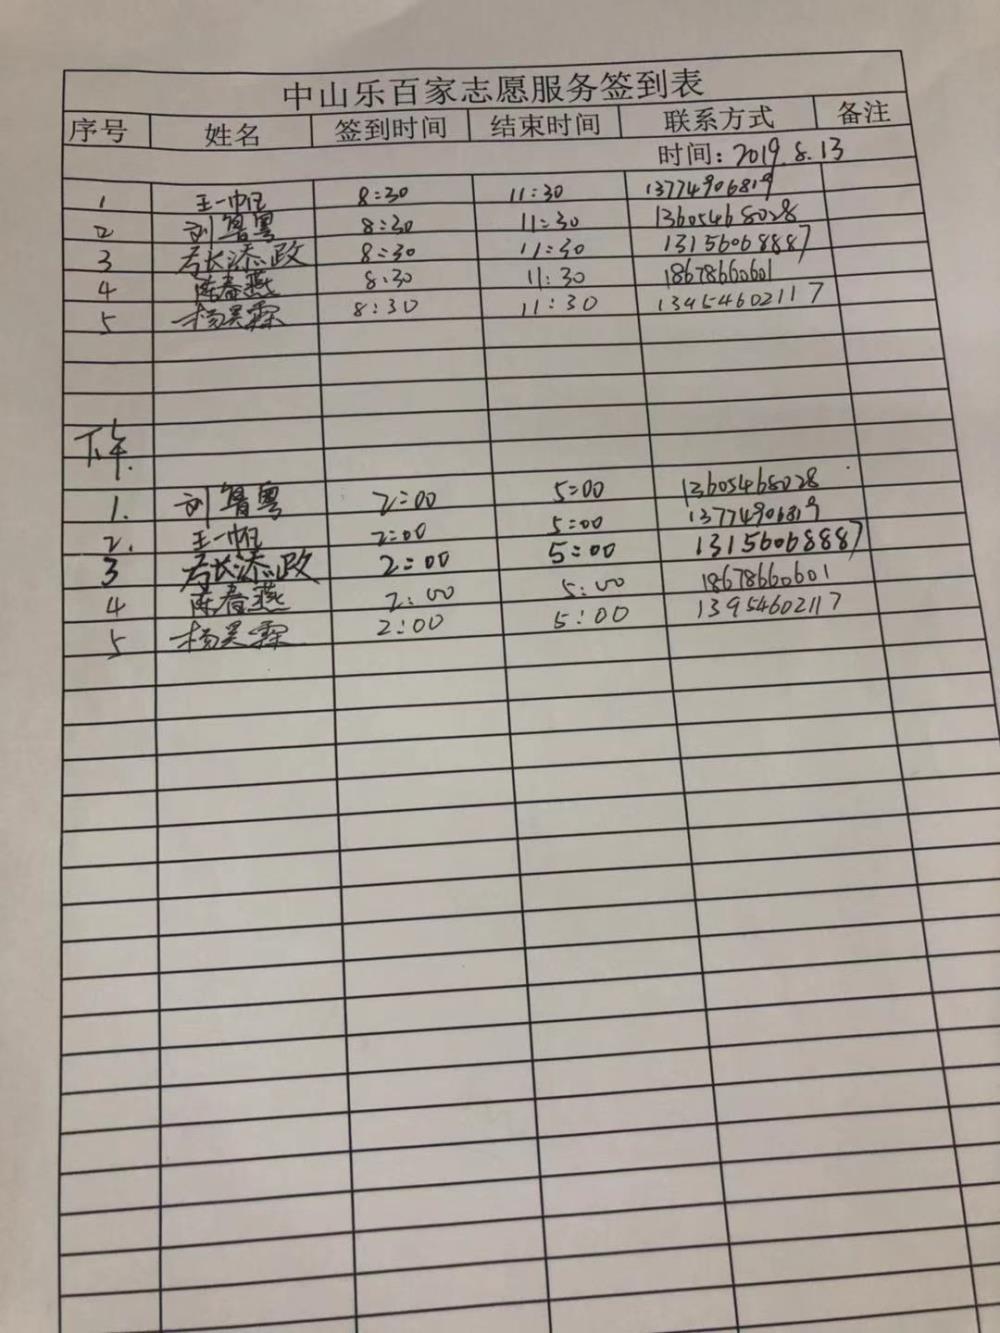 中山乐百家志愿服务签到表
序号 姓名 签到时间 结束时间 联系方式 备注
时间：2019.8.13
1 王一帆 8:30 11:30 13774906819
2 刘鲁粤 8:30 11:30 13605468028
3 添政 8:30 11:30 13156068887
4 陈春燕 8:30 11:30 18678660601
5 杨昊霖 8:30 11:30 13954602117
下午.
1. 刘鲁粤 2:00 5:00 13605468028
2. 王一帆 2:00 5:00 13774906819
3 添政 2:00 5:00 13156068887
4 陈春燕 2:00 5:00 18678660601
5 杨昊霖 2:00 5:00 13954602117